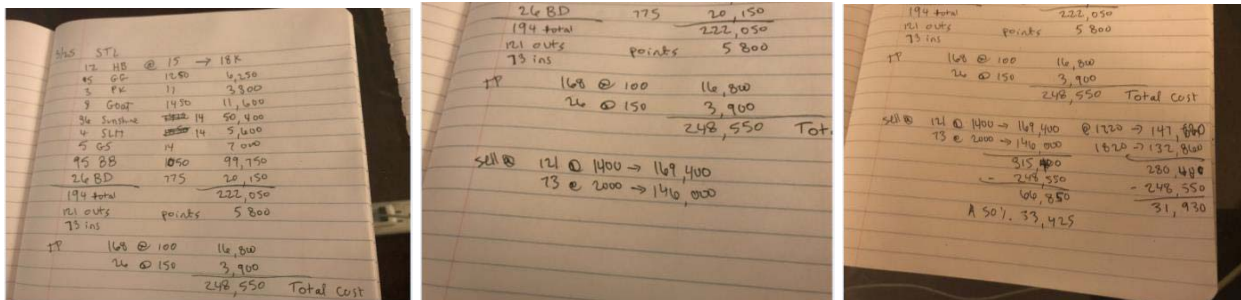 5/25 STL
12 HB @ 15 → 18K
5 GG 1250 6,250
3 PK 11 3800
8 Goat 1450 11,600
36 Sunshine 14 50,400
4 SLM 14 5,600
5 GS 14 7000
95 BB 1050 99,750
26 BD 775 20,150
194 total 222,050
121 outs points 5800
73 ins
TP 168 @ 100 16,800
26 @ 150 3,900
248,550 Total Cost
26 BD 775 20,150
194 total 222,050
121 outs points 5800
73 ins
TP 168 @ 100 16,800
26 @ 150 3,900
248,550 Tot
sell @ 121 @ 1400 → 169,400
73 @ 2000 → 146,000
194 total 222,050
121 outs points 5800
73 ins
TP 168 @ 100 16,800
26 @ 150 3,900
248,550 Total Cost
sell @ 121 @ 1400 → 169,400 @ 1220 → 147,
73 @ 2000 → 146,000 1820 → 132,860
315 400 280,480
- 248,550 - 248,550
66,850 31,930
A 50%. 33,425